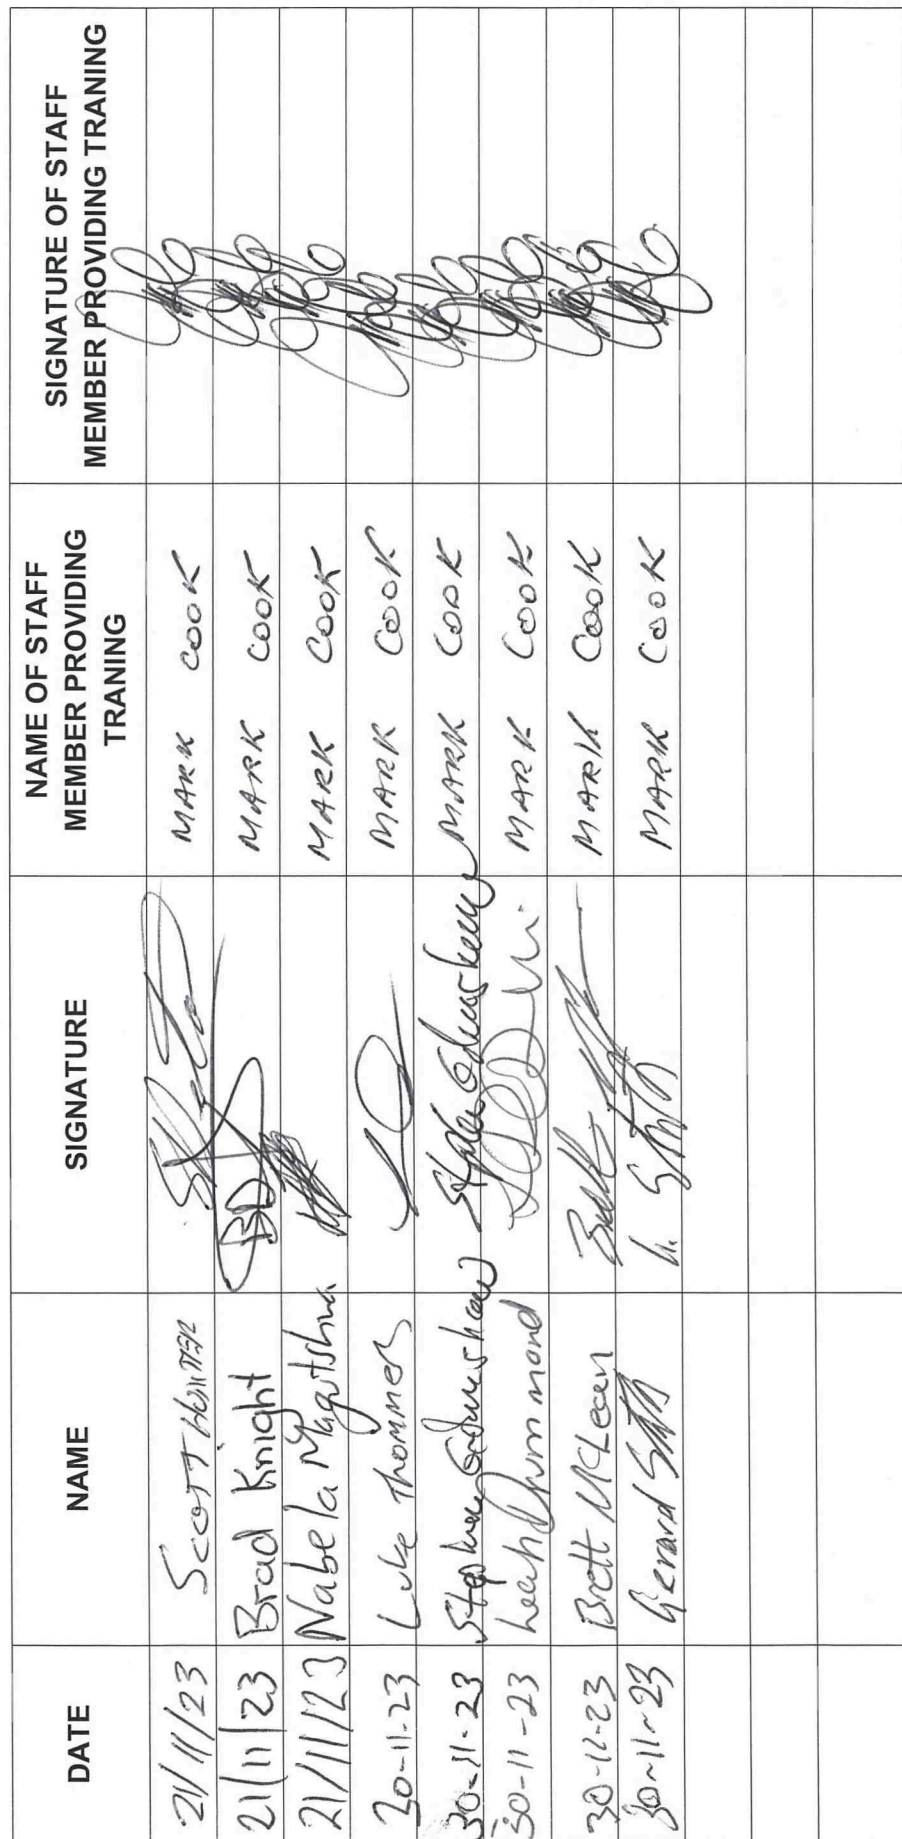 DATE NAME SIGNATURE NAME OF STAFF MEMBER PROVIDING TRANING SIGNATURE OF STAFF MEMBER PROVIDING TRANING
21/11/23 SCOTT HUNTER MARK COOK
21/11/23 Brad Knight MARK COOK
21/11/23 Nabela MARK COOK
30-11-23 Luke Thommes MARK COOK
30-11-23 Stephen MARK COOK
30-11-23 Leah Drummond MARK COOK
30-11-23 Brett McLean MARK COOK
30-11-23 Gerard MARK COOK